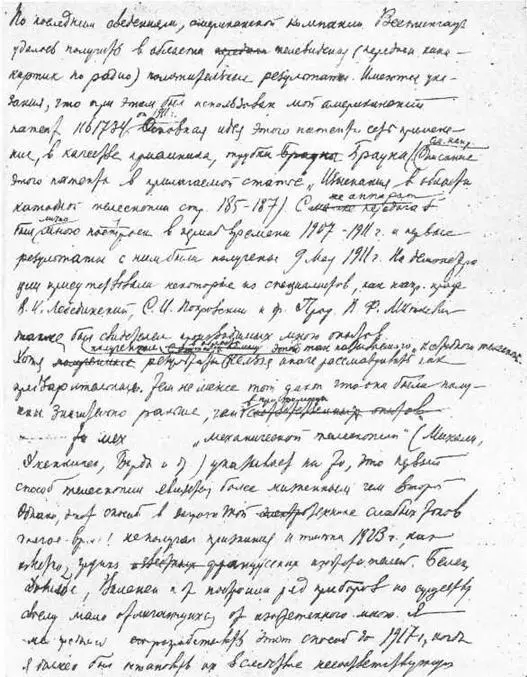 По последним сведениям, американской компании Вестингауз
удалось получить в области телевидения (передачи кино-
картин по радио) положительные результаты. Имеются ука-
зания, что при этом был использован мой американский
патент 1161734 от 1911 г. Основная идея этого патента есть примене-
ние, в качестве приемника, трубки Брауна (Описание
этого патента в прилагаемой статье „Изыскания в области
катодной телескопии стр. 185-187)
был лично мною построен в период времени 1907-1911 г. и первые
результаты с ним были получены 9 мая 1911 г. На демонстра-
ции присутствовали некоторые из специалистов, как напр. проф.
В. К. Лебединский, С. И. Покровский и др. Проф. В. Ф. Миткевич
также был свидетелем произведенных мною опытов.
Хотя результаты нельзя иначе рассматривать как
предварительные, тем не менее тот факт что они были полу-
чены значительно раньше, чем
„механической телескопии" (Михали,
Дженкинс, Берд и др) указывает на то, что первый
способ телескопии является более жизненным чем второй
Однако, этот способ в технике слабых токов
не получал признания и только 1923 г., как
французских изобретателей. Белен
Довилье, Валенси и др построили ряд приборов по существу
своему мало отличающихся от изобретенного мною. Я
этот способ до 1917 г., когда
я должен был остановить их вследствие несоответствующих